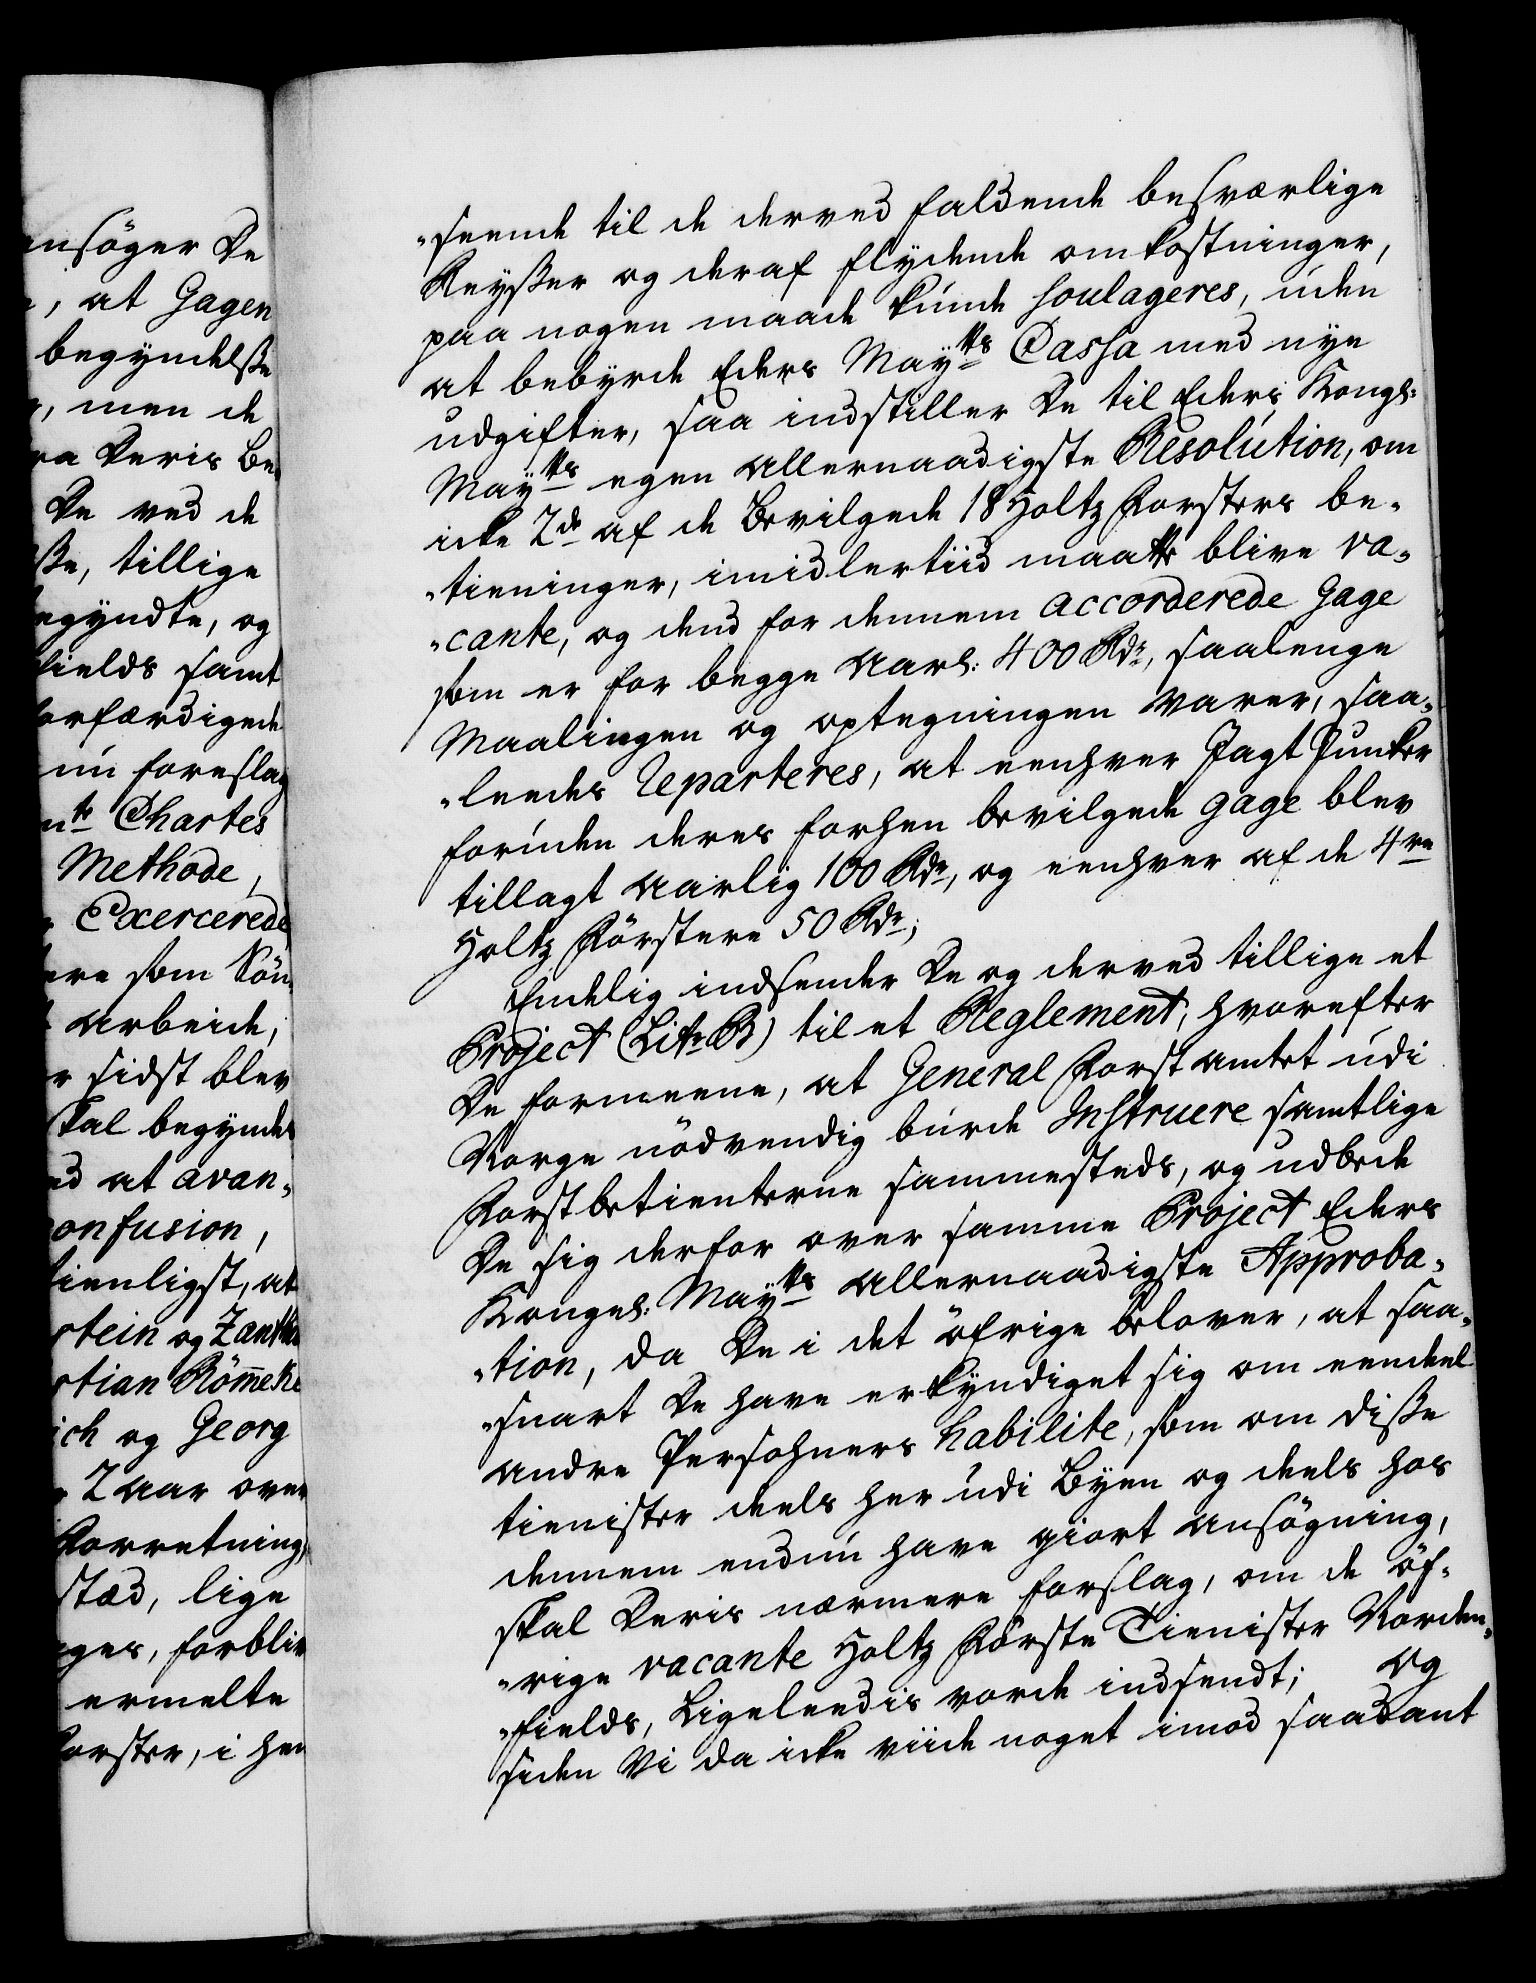 ansøger De
, at Gagen
begyndelße
, men de
ra Deris Be¬
De ved de
ße, tillige
egyndte, og
fields samt
forfærdigede
nú foreslag
nte Chartes
Methode,
Excercerede
ere som kön¬
arbeide,
r sidst blev
skal begyndes
ed at avan¬
onfusion,
tienligst, at
rtein og Zanthi
stian Römeke
ich og Georg
2 aar over
Forretning,
stæd, lige
ges, forbliv
ermelte
forster, i hen
„seende til de derved faldende besværlige
Reyßer og deraf flydende omkostninger,
paa nogen maade kúnde soulageres, úden
at bebyrde Eders Maytts Cassa med nye
udgifter, saa indstiller De til Eders Kongl:
Maytts egen allernaadigste Resolútion, om
icke 2de af de Bevilgede 18 Holtz Forsters be¬
„tieninger, imidlertiid maatte blive va¬
„cante, og dend for dennem accorderede gage
som er for begge aarl: 400 Rdr, saalenge
Maalingen og optegningen varer, saa¬
„leedes reparteres, at eenhver Jagt Junker
forúden deres forhen bevilgede gage blev
tillagt aarlig 100 Rdr, og eenhver af de 4re
Holtz Förstere 50 Rdr;
Endelig indsender De og derved tillige et
Project (Litr B) til et Reglement, hvorefter
De formeene, at General Forst amtet údi
Norge nödvendig búrde Instruere samtlige
Forstbetienterne sammesteds, og udbede
De sig derfor over samme Project Eders
Konges: Maytts allernaadigste Approba¬
„tion, da De i det öfrige belover, at saa¬
„snart De have erkyndiget sig om eendeel
andre Persohners habilite, som om diße
tienister deels her údi Byen og deels hos
dennem endnú have giort ansögning,
skal Deris nærmere forslag, om de öf¬
„rige vacante Holtz Förste Tienister Norden¬
„fields, Ligeleedis vorde indsendt; og
siden Vi da icke viide noget imod saadant